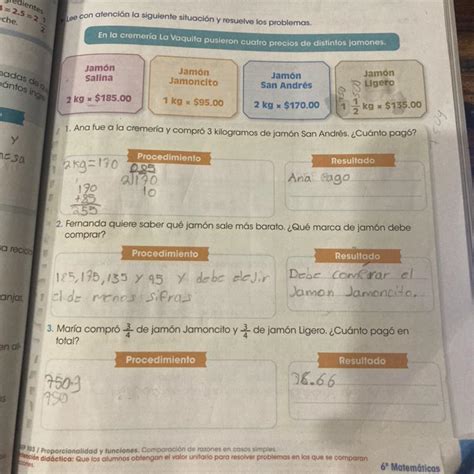 = 2.5 = 2 1/2
che.
Lee con atención la siguiente situación y resuelve los problemas.
En la cremería La Vaquita pusieron cuatro precios de distintos jamones.
Jamón Salina
2 kg × $185.00
Jamón Jamoncito
1 kg × $95.00
Jamón San Andrés
2 kg × $170.00
Jamón Ligero
1 1/2 kg × $135.00
1. Ana fue a la cremería y compró 3 kilogramos de jamón San Andrés. ¿Cuánto pagó?
Procedimiento
Resultado
2 kg = 170
085
2 170
10
170
+85
255
Ana Pago
2. Fernanda quiere saber qué jamón sale más barato. ¿Qué marca de jamón debe
comprar?
Procedimiento
Resultado
y debe elejir
el de menos sifras
Debe comprar el
Jamon Jamoncito.
3. María compró 3/4 de jamón Jamoncito y 3/4 de jamón Ligero. ¿Cuánto pagó en
total?
Procedimiento
Resultado
750
38.66
/ Proporcionalidad y funciones. Comparación de razones en casos simples.
didáctica: Que los alumnos obtengan el valor unitario para resolver problemas en los que se comparan
6° Matemáticas